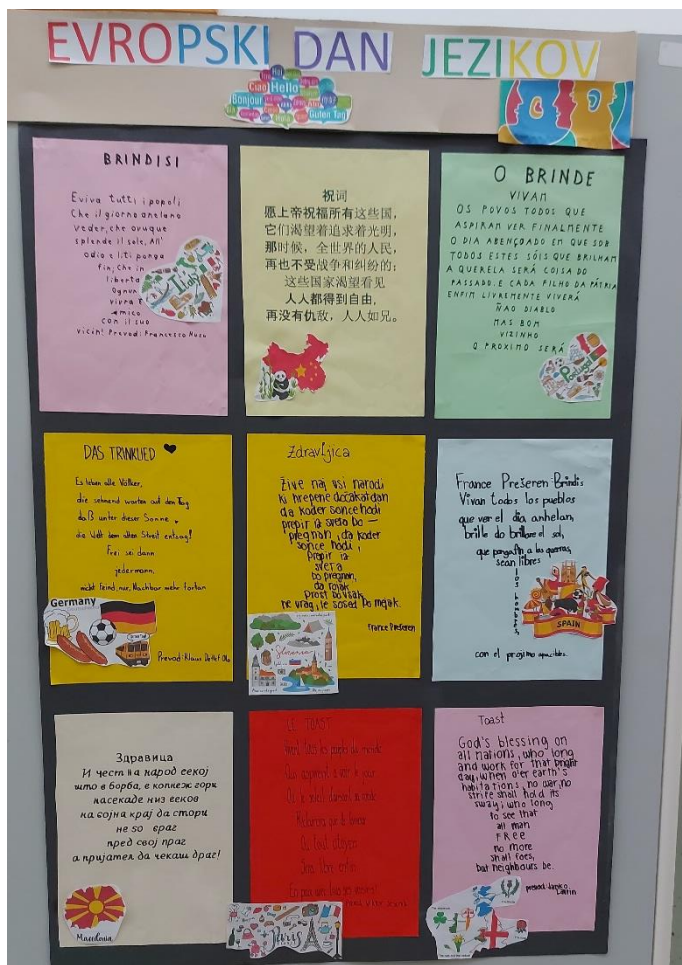 EVROPSKI DAN JEZIKOV
Ciao Hello
Bonjour
Guten Tag
BRINDISI
Eviva tutti i popoli
Che il giorno anelano
veder, che ovuque
splende il sole, All'
odio e liti ponga
fin, Che in
liberta
Ognun
vivra
amico
con il suo
vicin! Prevod: Francesco
Italy
祝词
愿上帝祝福所有这些国,
它们渴望着追求着光明,
那时候, 全世界的人民,
再也不受战争和纠纷的;
这些国家渴望看见
人人都得到自由,
再没有仇敌, 人人如兄。
O BRINDE
VIVAM
OS POVOS TODOS QUE
ASPIRAM VER FINALMENTE
O DIA ABENÇOADO EM QUE SOB
TODOS ESTES SÓIS QUE BRILHAM
A QUERELA SERÁ COISA DO
PASSADO. E CADA FILHO DA PÁTRIA
ENFIM LIVREMENTE VIVERÁ
ÑAO DIABLO
MAS BOM
VIZINHO
O PROXIMO SERÁ
Portugal
DAS TRINKLIED
Es leben alle Völker,
die sehnend warten auf den Tag
daß unter dieser Sonne,
die Welt dem alten Streit entsag!
Frei sei dann
jedermann,
nicht Feind, nur Nachbar mehr fortan
Germany
Prevod: Klaus Detlef
Zdravljica
Žive naj vsi narodi
ki hrepene dočakat dan
da koder sonce hodi
prepir iz sveta bo
pregnan, da koder
sonce hodi,
prepir iz
sveta
bo pregnan,
da rojak
prost bo vsak,
ne vrag, le sosed bo mejak.
France Prešeren
Slovenia
France Prešeren: Brindis
Vivan todos los pueblos
que ver el dia anhelan,
brille do brillare el sol,
que pongan fin a las guerras,
sean libres
los hombres,
con el projimo apacibles.
SPAIN
Здравица
И чест на народ секој
што в борба, в копнеж гори
насекаде низ веков
на војна крај да стори
не so враг
пред свој праг
а пријател да чекаш драг!
Macedonia
LE TOAST
Ou le soleil
Où tout citoyen
Sera libre enfin
Paris
Toast
God's blessing on
all nations, who long
and work for that bright
day, when o'er earth's
habitations, no war, no
strife shall hold its
sway; who long
to see that
all man
FREE
no more
shall foes,
but neighbours be.
prevod: Janko
Lavrin